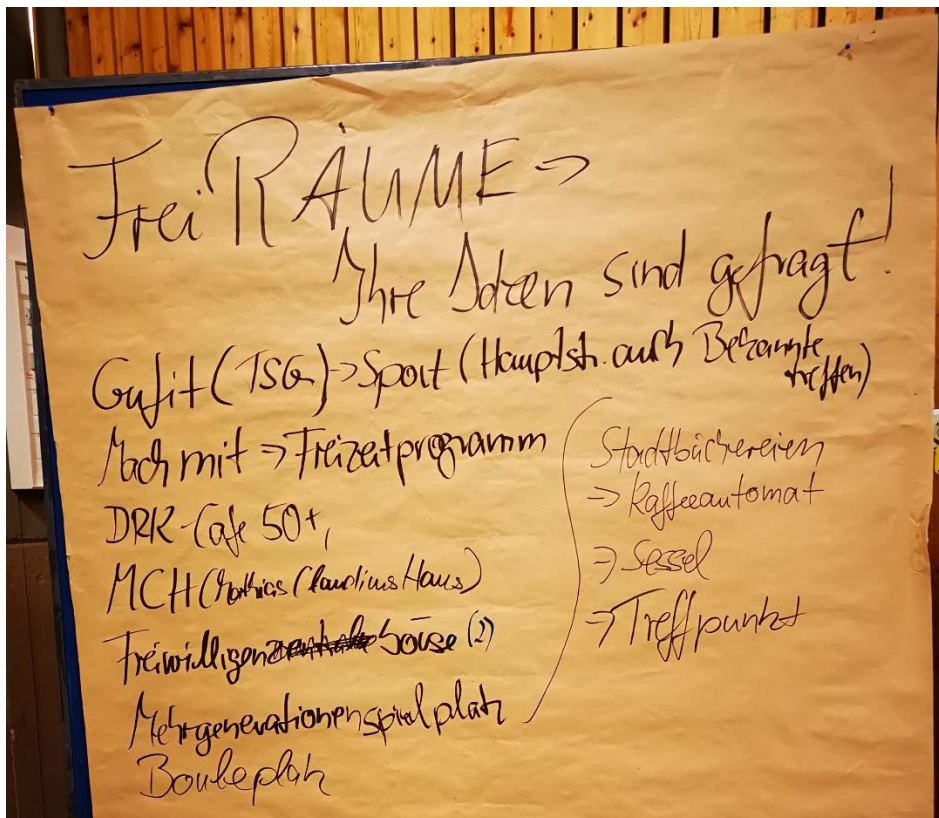 FreiRÄUME →
Ihre Ideen sind gefragt!
Gufit (TSG) → Sport (Hauptstr. auch Bekannte
treffen)
Mach mit → Freizeitprogramm
DRK-Cafe 50+,
MCH (Mathias Claudius Haus)
Freiwilligen börse (2)
Mehrgenerationenspielplatz
Bouleplatz
Stadtbüchereien
→ Kaffeeautomat
→ Sessel
→ Treffpunkt